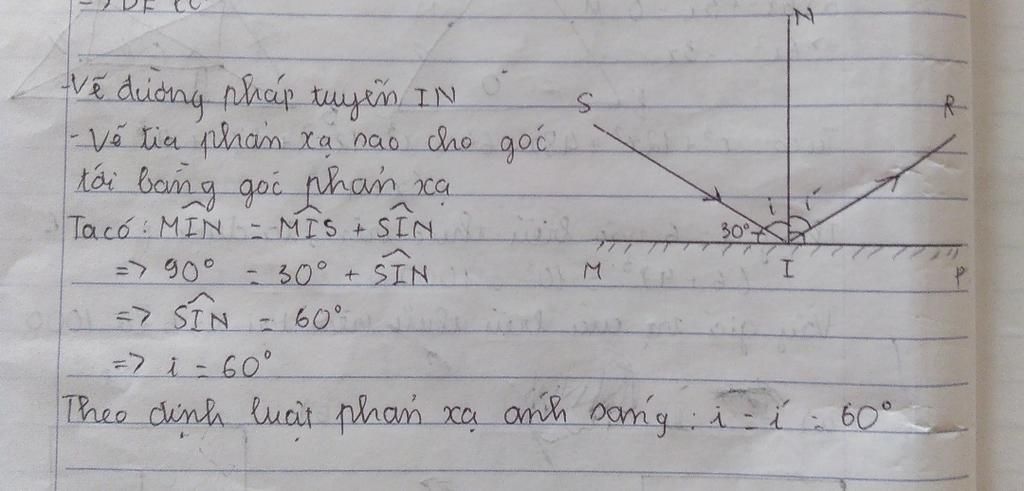 => DE
-Vẽ đường pháp tuyến IN
-Vẽ tia phản xạ sao cho góc
tới bằng góc phản xạ
Ta có : MIN = MIS + SIN
=> 90° = 30° + SIN
=> SIN = 60°
=> i = 60°
Theo định luật phản xạ ánh sáng : i = i' = 60°
N
S
R
i i'
30°
M
I
P